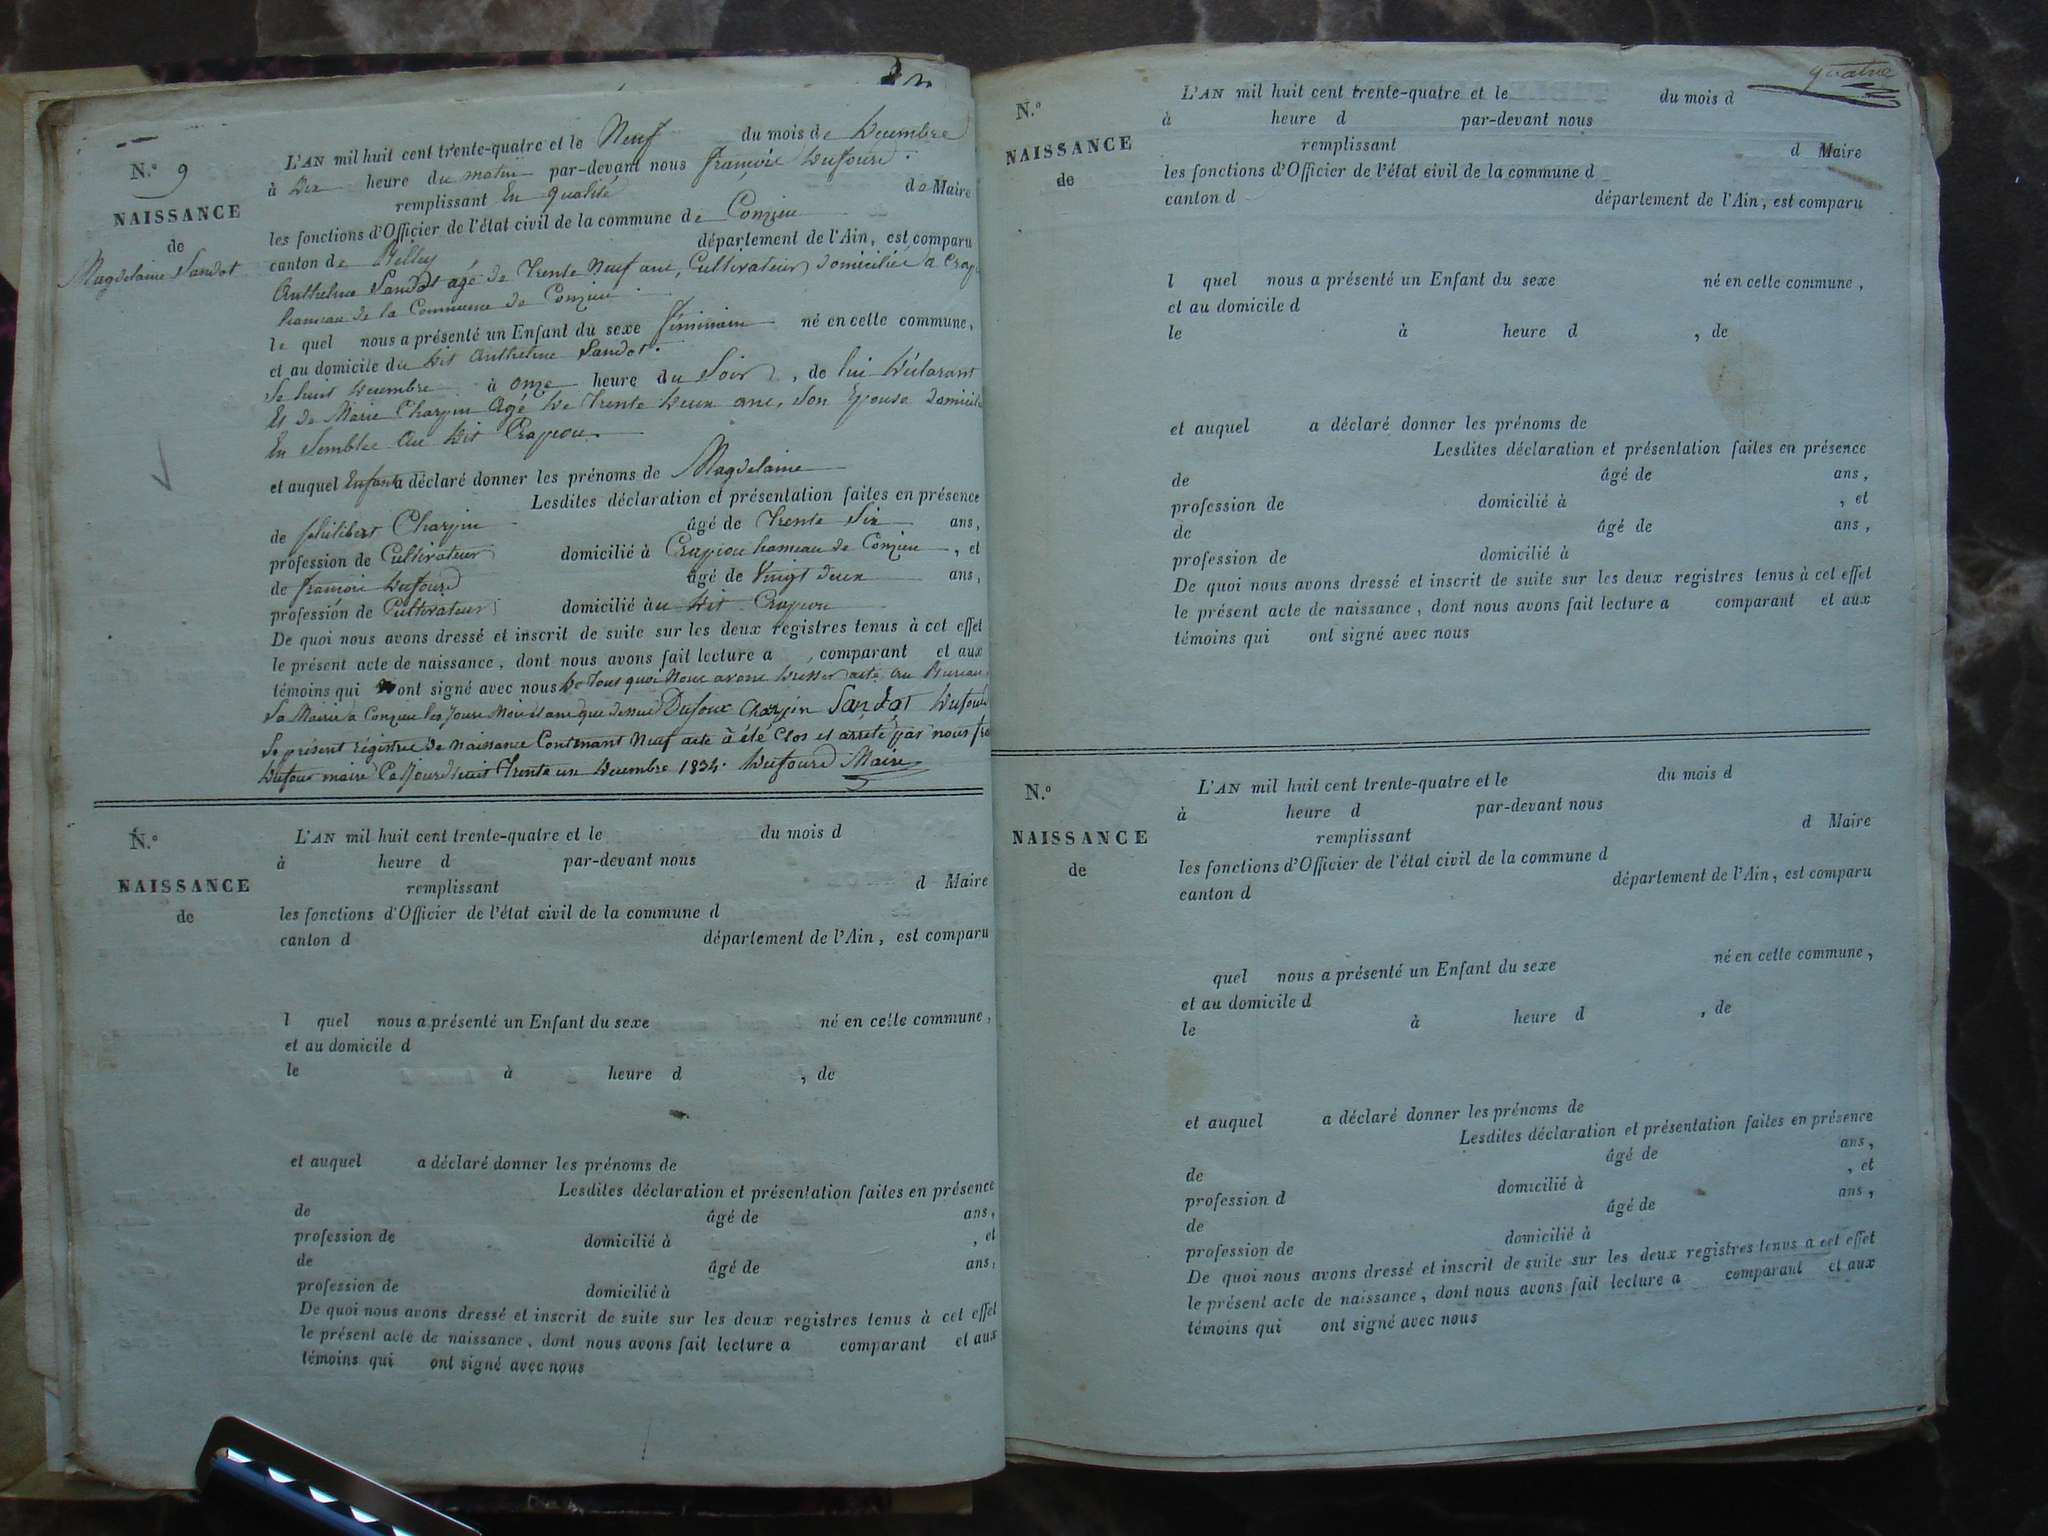 N.° 9
NAISSANCE
de
Magdelaine Sandot
L'AN mil huit cent trente-quatre et le Neuf du mois de Décembre
à Dix heure du matin par-devant nous françois Dufourd
remplissant En qualité de Maire
les fonctions d'Officier de l'état civil de la commune de Conzieu
canton de Belley département de l'Ain, est comparu
Anthelme Sandot agé de Trente Neuf ans, Cultivateur domicilié a
hameau de la Commune de Conzieu
le quel nous a présenté un Enfant du sexe féminin né en cette commune,
et au domicile du Dit Anthelme Sandot.
Le huit Décembre à onze heure du Soir, de lui Déclarant
Et de Marie Charpin Agé De Trente Deux ans, Son Epouse
En Semblee au Dit Crapéou
et auquel Enfant a déclaré donner les prénoms de Magdelaine
Lesdites déclaration et présentation faites en présence
de philibert Charpin âgé de Trente Six ans,
profession de Cultivateur domicilié à Crapéou hameau de Conzieu, et
de françois Dufourd âgé de Vingt deux ans,
profession de Cultivateur domicilié au Dit Crapéou
De quoi nous avons dressé et inscrit de suite sur les deux registres tenus à cet effet
le présent acte de naissance, dont nous avons fait lecture a comparant et aux
témoins qui ont signé avec nous De Tout quoi Nous avons Dresser acte au Bureau
La Mairie a Conzieu les Jours Mois et ans que dessus Dufour Charpin Sandot Dufourd
Le présent régistre de naissance Contenant Neuf acte à été Clos et arrété par nous
Dufour maire Cejourd'huit Trente un Décembre 1834. Dufourd Maire
N.°
NAISSANCE
de
L'AN mil huit cent trente-quatre et le du mois d
à heure d par-devant nous
remplissant d Maire
les fonctions d'Officier de l'état civil de la commune d
canton d département de l'Ain, est comparu
l quel nous a présenté un Enfant du sexe né en cette commune,
et au domicile d
le à heure d , de
et auquel a déclaré donner les prénoms de
Lesdites déclaration et présentation faites en présence
de âgé de ans,
profession de domicilié à , et
de âgé de ans,
profession de domicilié à
De quoi nous avons dressé et inscrit de suite sur les deux registres tenus à cet effet
le présent acte de naissance, dont nous avons fait lecture a comparant et aux
témoins qui ont signé avec nous
quatre
N.°
NAISSANCE
de
L'AN mil huit cent trente-quatre et le du mois d
à heure d par-devant nous
remplissant d Maire
les fonctions d'Officier de l'état civil de la commune d
canton d département de l'Ain, est comparu
l quel nous a présenté un Enfant du sexe né en cette commune,
et au domicile d
le à heure d , de
et auquel a déclaré donner les prénoms de
Lesdites déclaration et présentation faites en présence
de âgé de ans,
profession de domicilié à , et
de âgé de ans,
profession de domicilié à
De quoi nous avons dressé et inscrit de suite sur les deux registres tenus à cet effet
le présent acte de naissance, dont nous avons fait lecture a comparant et aux
témoins qui ont signé avec nous
N.°
NAISSANCE
de
L'AN mil huit cent trente-quatre et le du mois d
à heure d par-devant nous
remplissant d Maire
les fonctions d'Officier de l'état civil de la commune d
canton d département de l'Ain, est comparu
quel nous a présenté un Enfant du sexe né en cette commune,
et au domicile d
le à heure d , de
et auquel a déclaré donner les prénoms de
Lesdites déclaration et présentation faites en présence
de âgé de ans,
profession d domicilié à , et
de âgé de ans,
profession de domicilié à
De quoi nous avons dressé et inscrit de suite sur les deux registres tenus à cet effet
le présent acte de naissance, dont nous avons fait lecture a comparant et aux
témoins qui ont signé avec nous